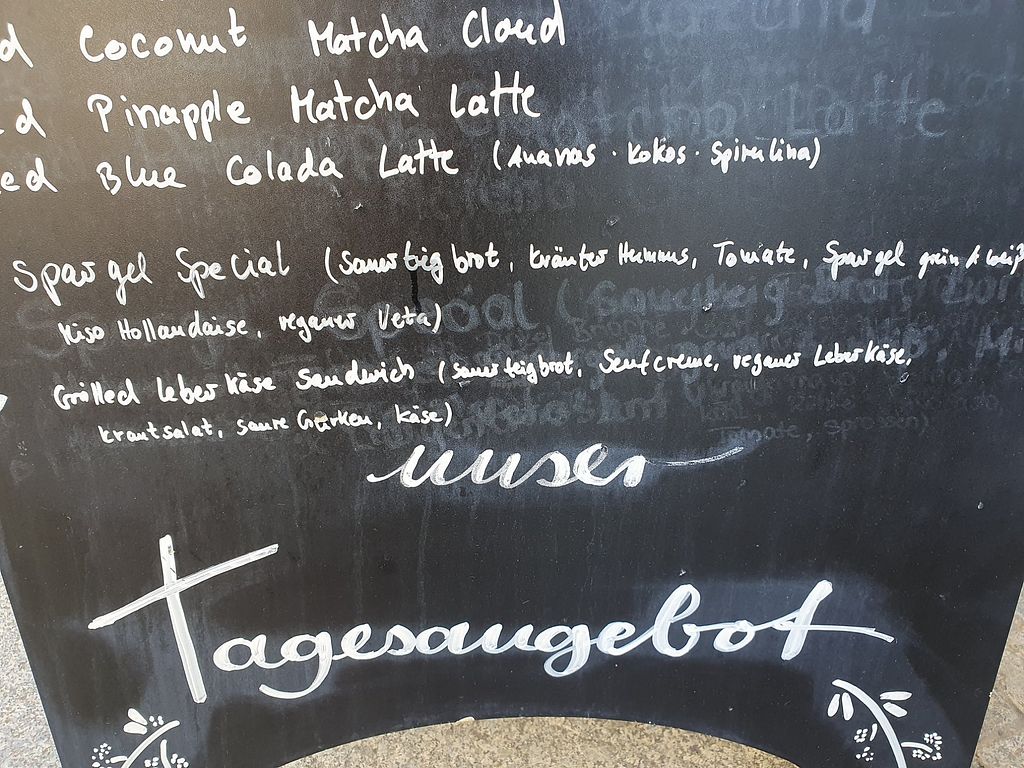 d Coconut Matcha Cloud
ed Pinapple Matcha Latte
ed Blue Colada Latte (Ananas · Kokos · Spirulina)
Spargel Special (Sauerteigbrot, Kräuter Hummus, Tomate, Spargel grün & weiß
Miso Hollandaise, veganer Veta)
Grilled Leberkäse Sandwich (Sauerteigbrot, Senfcreme, veganer Leberkäse,
Krautsalat, saure Gurken, Käse)
unser
Tagesangebot